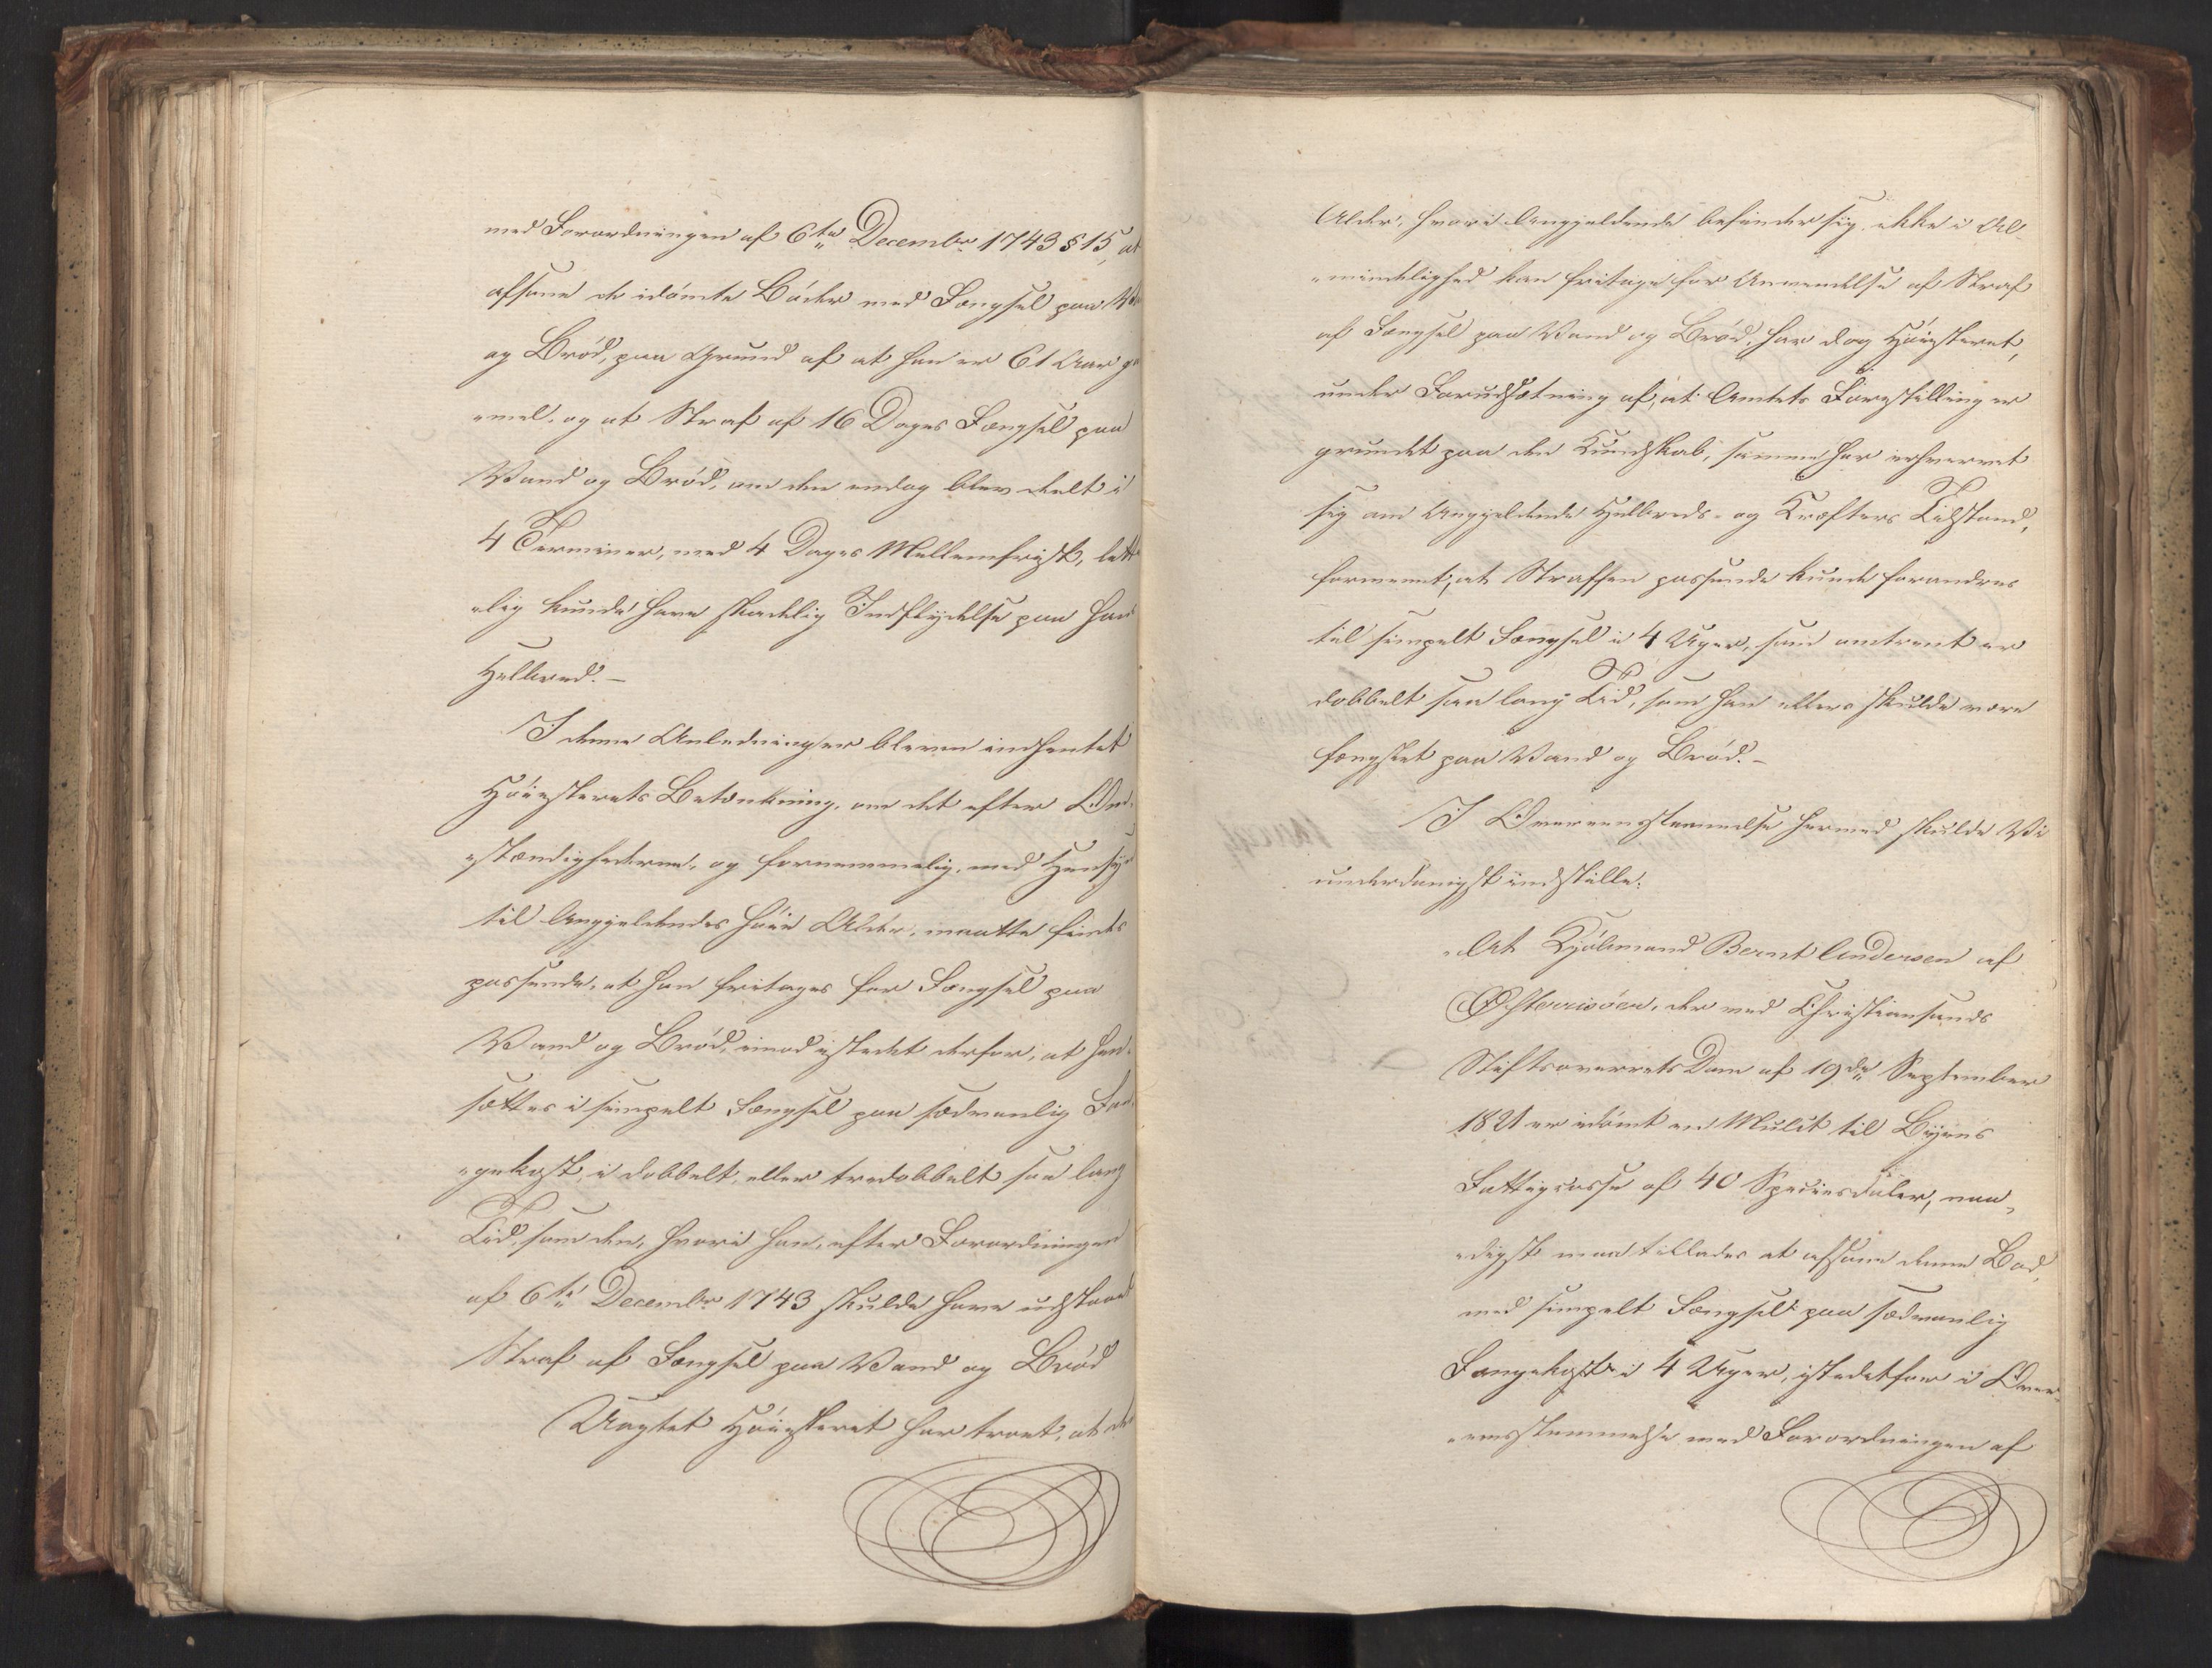 med Forordningen af 6te Decembr 1743 § 15, at
afsone de idømte Bøder med Fængsel paa
og Brød, paa Grund af at han er 61 Aar ga
„mel, og at Straf af 16 Dages Fængsel paa
Vand og Brød, om den endog blev deelt i
4 Terminer, med 4 Dages Mellemfrist, lett
„lig kunde have skadelig Indflydelse paa hans
Helbred. –
I denne Anledning er bleven indhentet
Høiesterets Betænkning, om det efter Om„
„stændighederne, og fornemmelig, med Hensyn
til Angjeldendes høie Alder, maatte findes
passende, at han fritages for Fængsel paa
Vand og Brød, imod istedet derfor, at hen„
sættes i simpelt Fængsel paa sædvanlig Fan„
„gekost, i dobbelt, eller tredobbelt saa lang
Tid, som den, hvori han, efter Forordningen
af 6te Decembr 1743 skulde have udstaaet
Straf af Fængsel paa Vand og Brød
Uagtet Høiesteret har troet, at den
Alder, hvori Angjeldende befinder sig, ikke i Al„
„mindelighed kan fritage for Anvendelse af Straf
af Fængsel paa Vand og Brød, har dog Høiesteret,
under Forudsætning af, at Amtets Forestilling er
grundet paa den Kundskab, samme har erhvervet
sig om Angjeldende Helbreds- og Kræfters Tilstand,
formeent, at Straffen passende kunde forandres
til simpelt Fængsel i 4 Uger, som omtrent er
dobbelt saa lang Tid, som han ellers skulde være
fængslet paa Vand og Brød. –
I Overeensstemmelse hermed skulde Vi
underdanigst indstille:
„At Kjøbmand Bernt Andersen af
Østerriisøen, der med Christiansands
Stiftsoverrets Dom af 19de September
1821 er idømt en Mulct til Byens
Fattigcasse af 40 Speciesdaler, naa„
„digst maa tillades at afsone denne Bod,
med simpelt Fængsel paa sædvanlig
Fangekost i 4 Uger, istedetfor i Over„
„eensstemmelse med Forordningen af